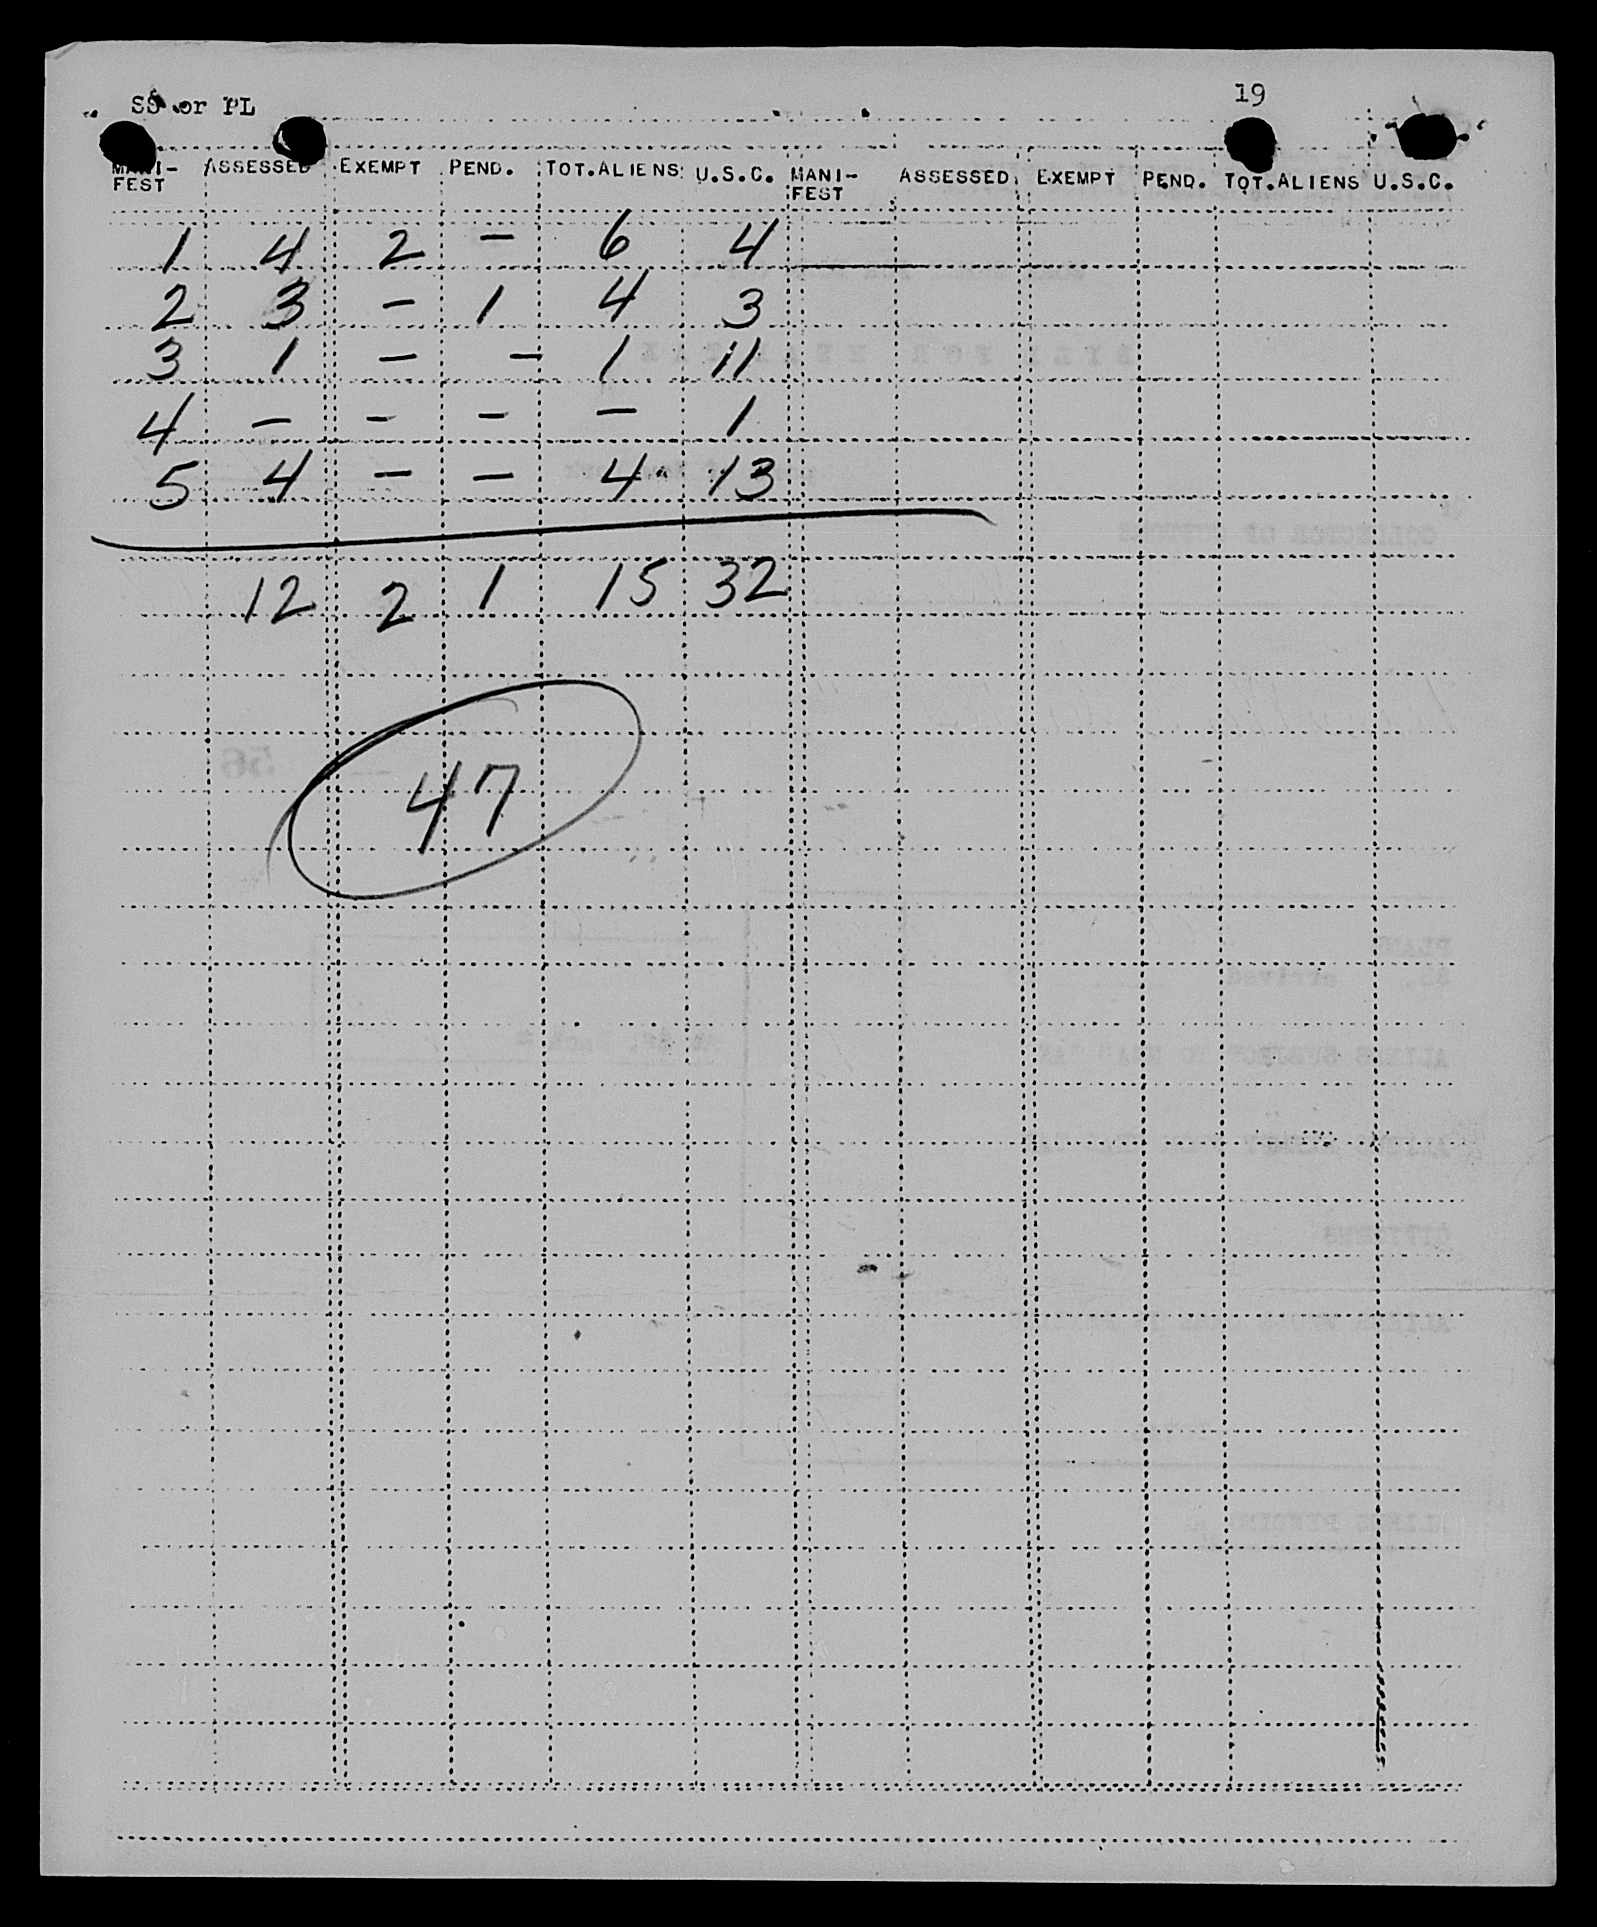 SS or PL 19
MANI- ASSESSED EXEMPT PEND. TOT.ALIENS U.S.C. MANI- ASSESSED EXEMPT PEND. TOT.ALIENS U.S.C.
FEST FEST
1 4 2 - 6 4
2 3 - 1 4 3
3 1 - - 1 11
4 - - - - 1
5 4 - - 4 13
12 2 1 15 32
47